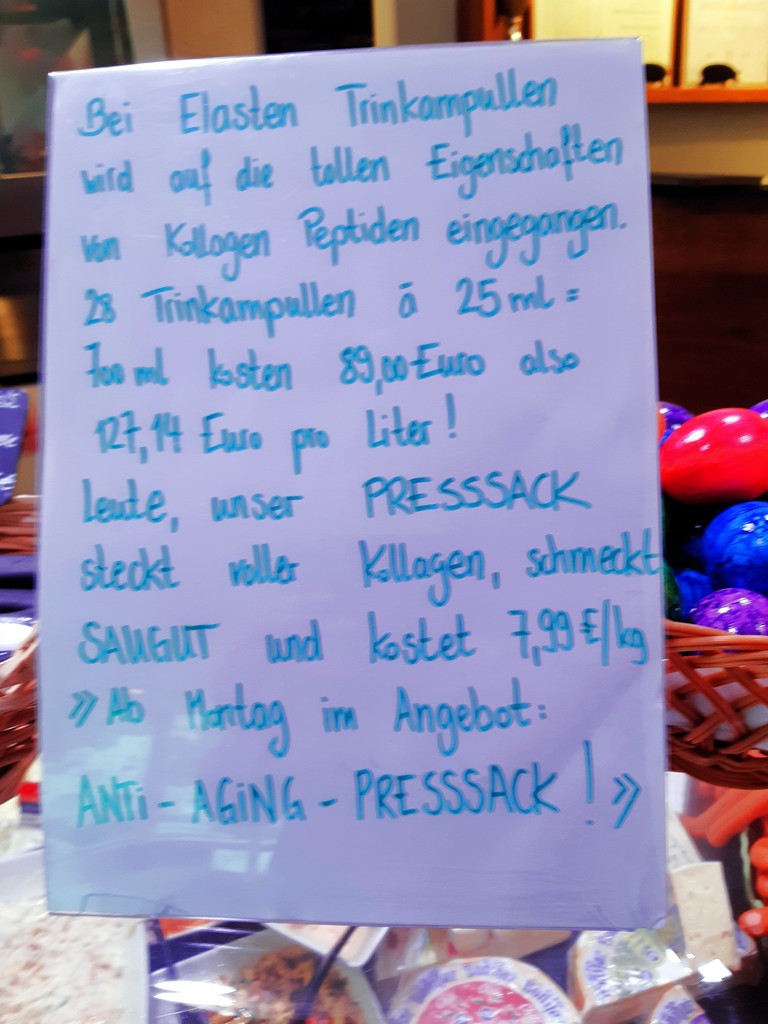 Bei Elasten Trinkampullen
wird auf die tollen Eigenschaften
von Kollagen Peptiden eingegangen.
28 Trinkampullen á 25 ml =
700 ml kosten 89,00 Euro also
127,14 Euro pro Liter!
Leute, unser PRESSSACK
steckt voller Kollagen, schmeckt
SAUGUT und kostet 7,99 €/kg
» Ab Montag im Angebot:
ANTi-AGiNG-PRESSSACK! »